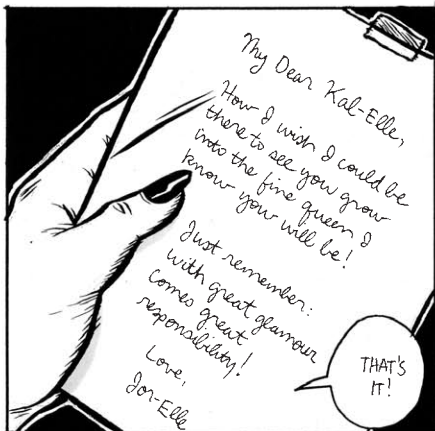 My Dear Kal-Elle,
How I wish I could be
there to see you grow
into the fine queen I
know you will be!
Just remember:
with great glamour
comes great
responsibility!
Love,
Jor-Elle
THAT'S
IT!